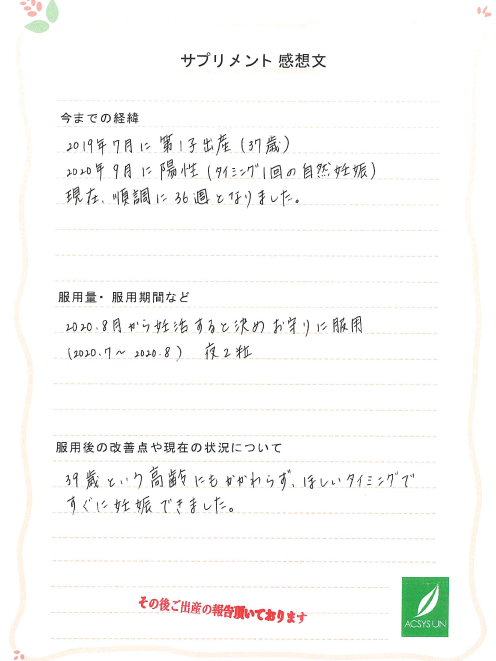 サプリメント 感想文
今までの経緯
2019年7月に 第1子出産 (37歳)
2020年9月に 陽性 (タイミング1回の自然妊娠)
現在、順調に36週となりました。
服用量・服用期間など
2020.8月から妊活すると決めお守りに服用
(2020.7〜 2020.8) 夜2粒
服用後の改善点や現在の状況について
39歳という高齢にもかかわらず、ほしいタイミングで
すぐに妊娠できました。
その後ご出産の報告頂いております
ACSYSUN